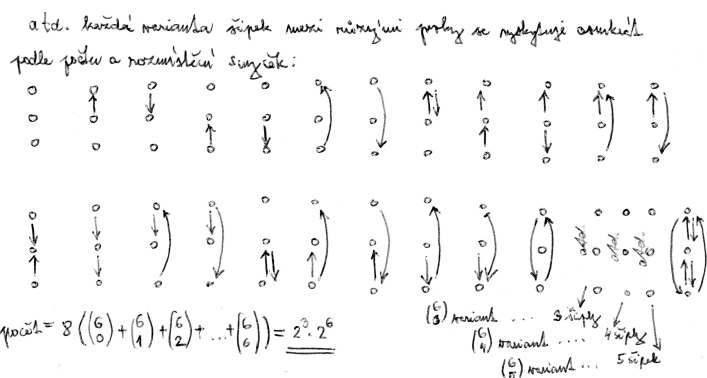 atd. každá varianta šipek mezi různými prvky se vyskytuje osmkrát
podle počtu a rozmístění smyček:
atd. atd. atd.
počet = 8 ((6 0) + (6 1) + (6 2) + ... + (6 6)) = 2³ · 2⁶
(6 3) variant ... 3 šipky
(6 4) variant .... 4 šipky
(6 5) variant ... 5 šipek